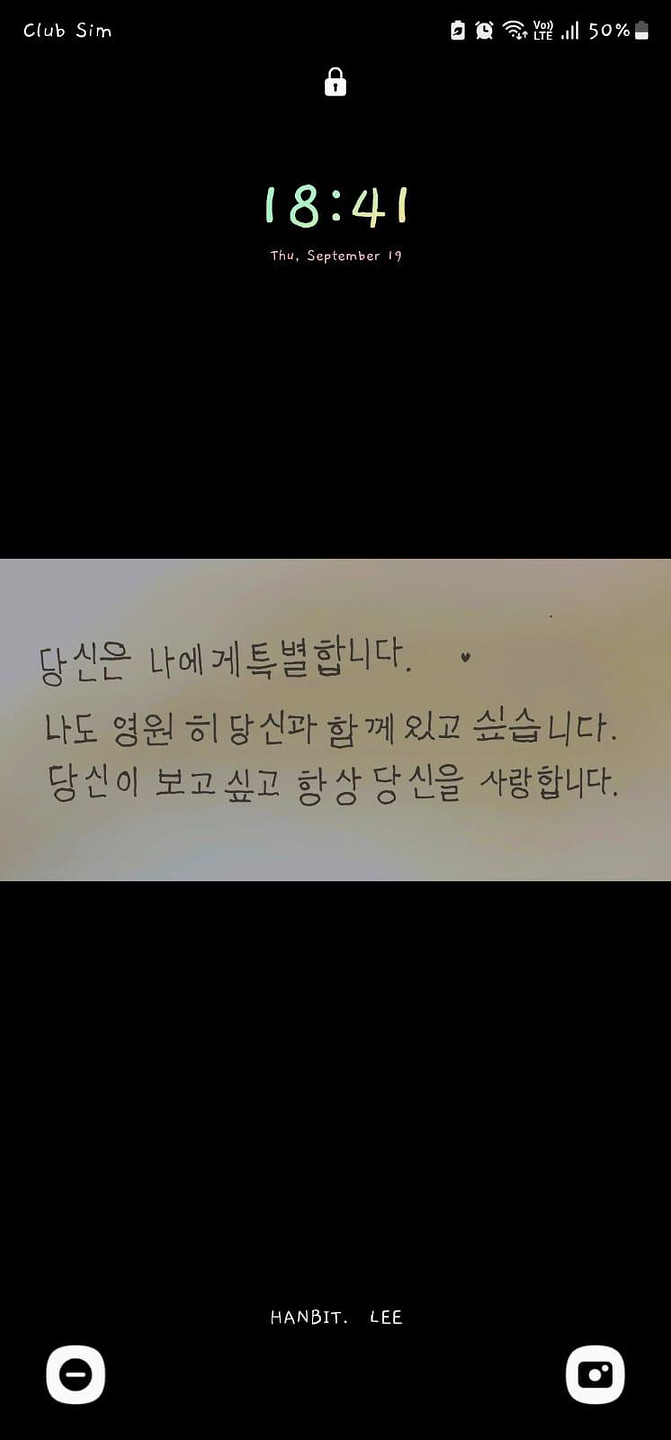 Club Sim Vo)) LTE 50%
18:41
Thu, September 19
당신은 나에게특별합니다. ♥
나도 영원 히 당신과 함께 있고 싶습니다.
당신이 보고싶고 항상 당신을 사랑합니다.
HANBIT. LEE